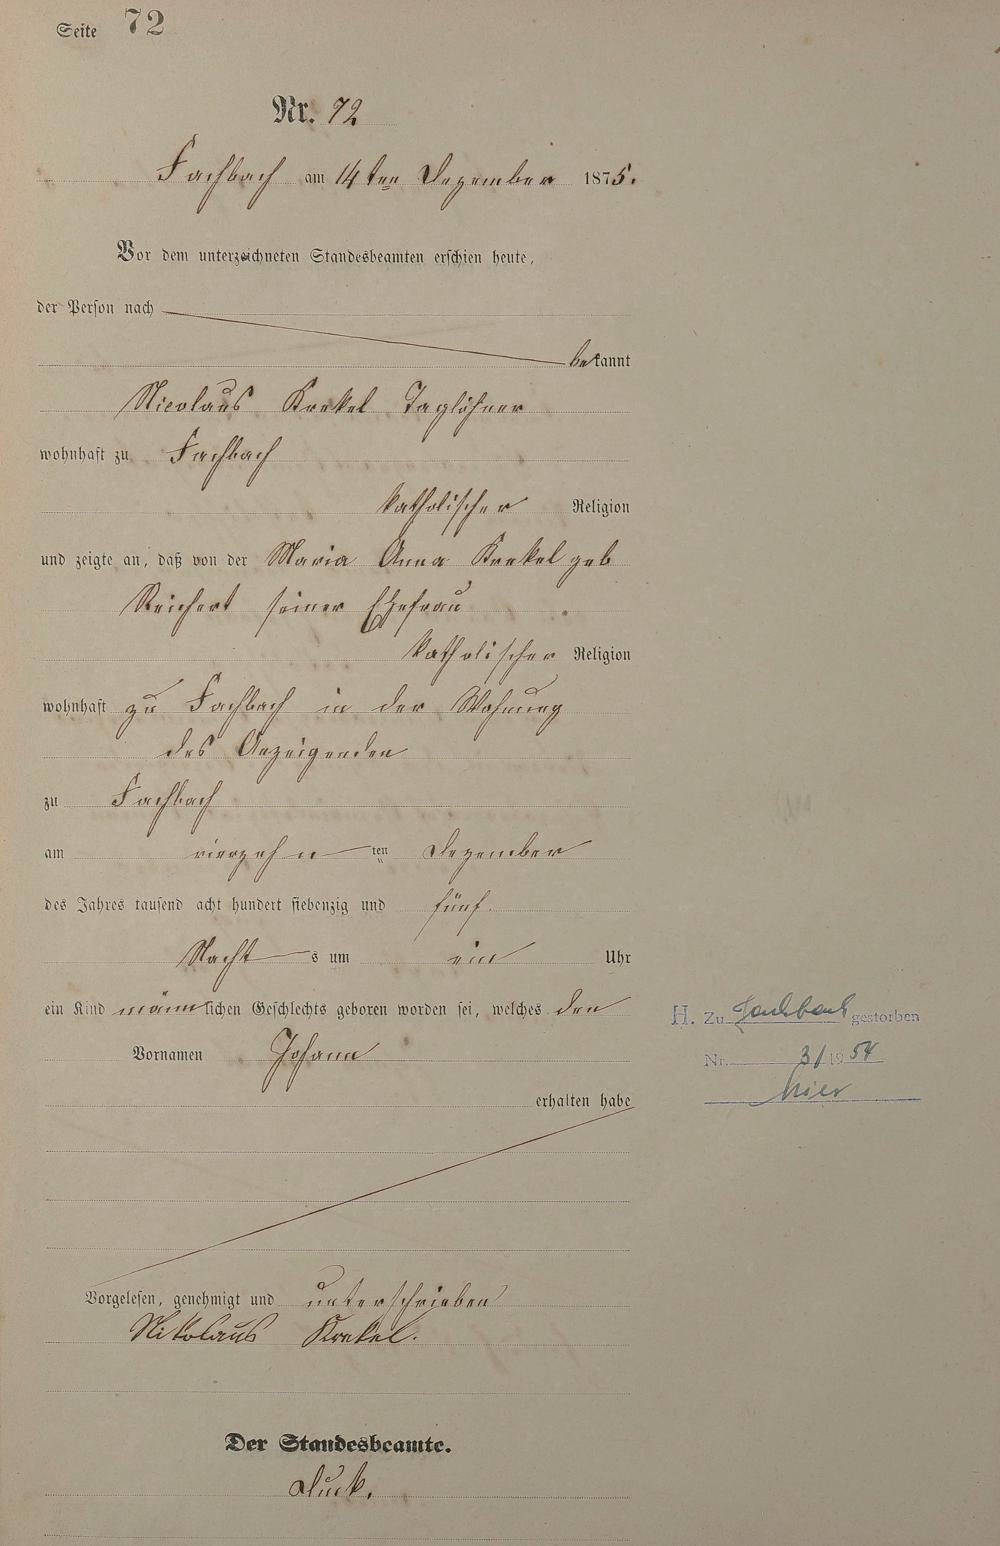 Seite 72
Nr. 72
Fachbach am 14ten Dezember 1875.
Vor dem unterzeichneten Standesbeamten erschien heute,
der Person nach
bekannt
Nicolaus Krekel Taglöhner
wohnhaft zu Fachbach
katholischer Religion
und zeigte an, daß von der Maria Anna Krekel geb
Reichert seiner Ehefrau
katholischer Religion
wohnhaft zu Fachbach in der Wohnung
des Anzeigenden
zu Fachbach
am vierzehn ten Dezember
des Jahres tausend acht hundert siebenzig und fünf
Nacht s um ein Uhr
ein Kind männlichen Geschlechts geboren worden sei, welches den
Vornamen Johann
erhalten habe
H. Zu Fachbach gestorben
Nr. 3/1954
Vorgelesen, genehmigt und unterschrieben
Nikolaus Krekel.
Der Standesbeamte.